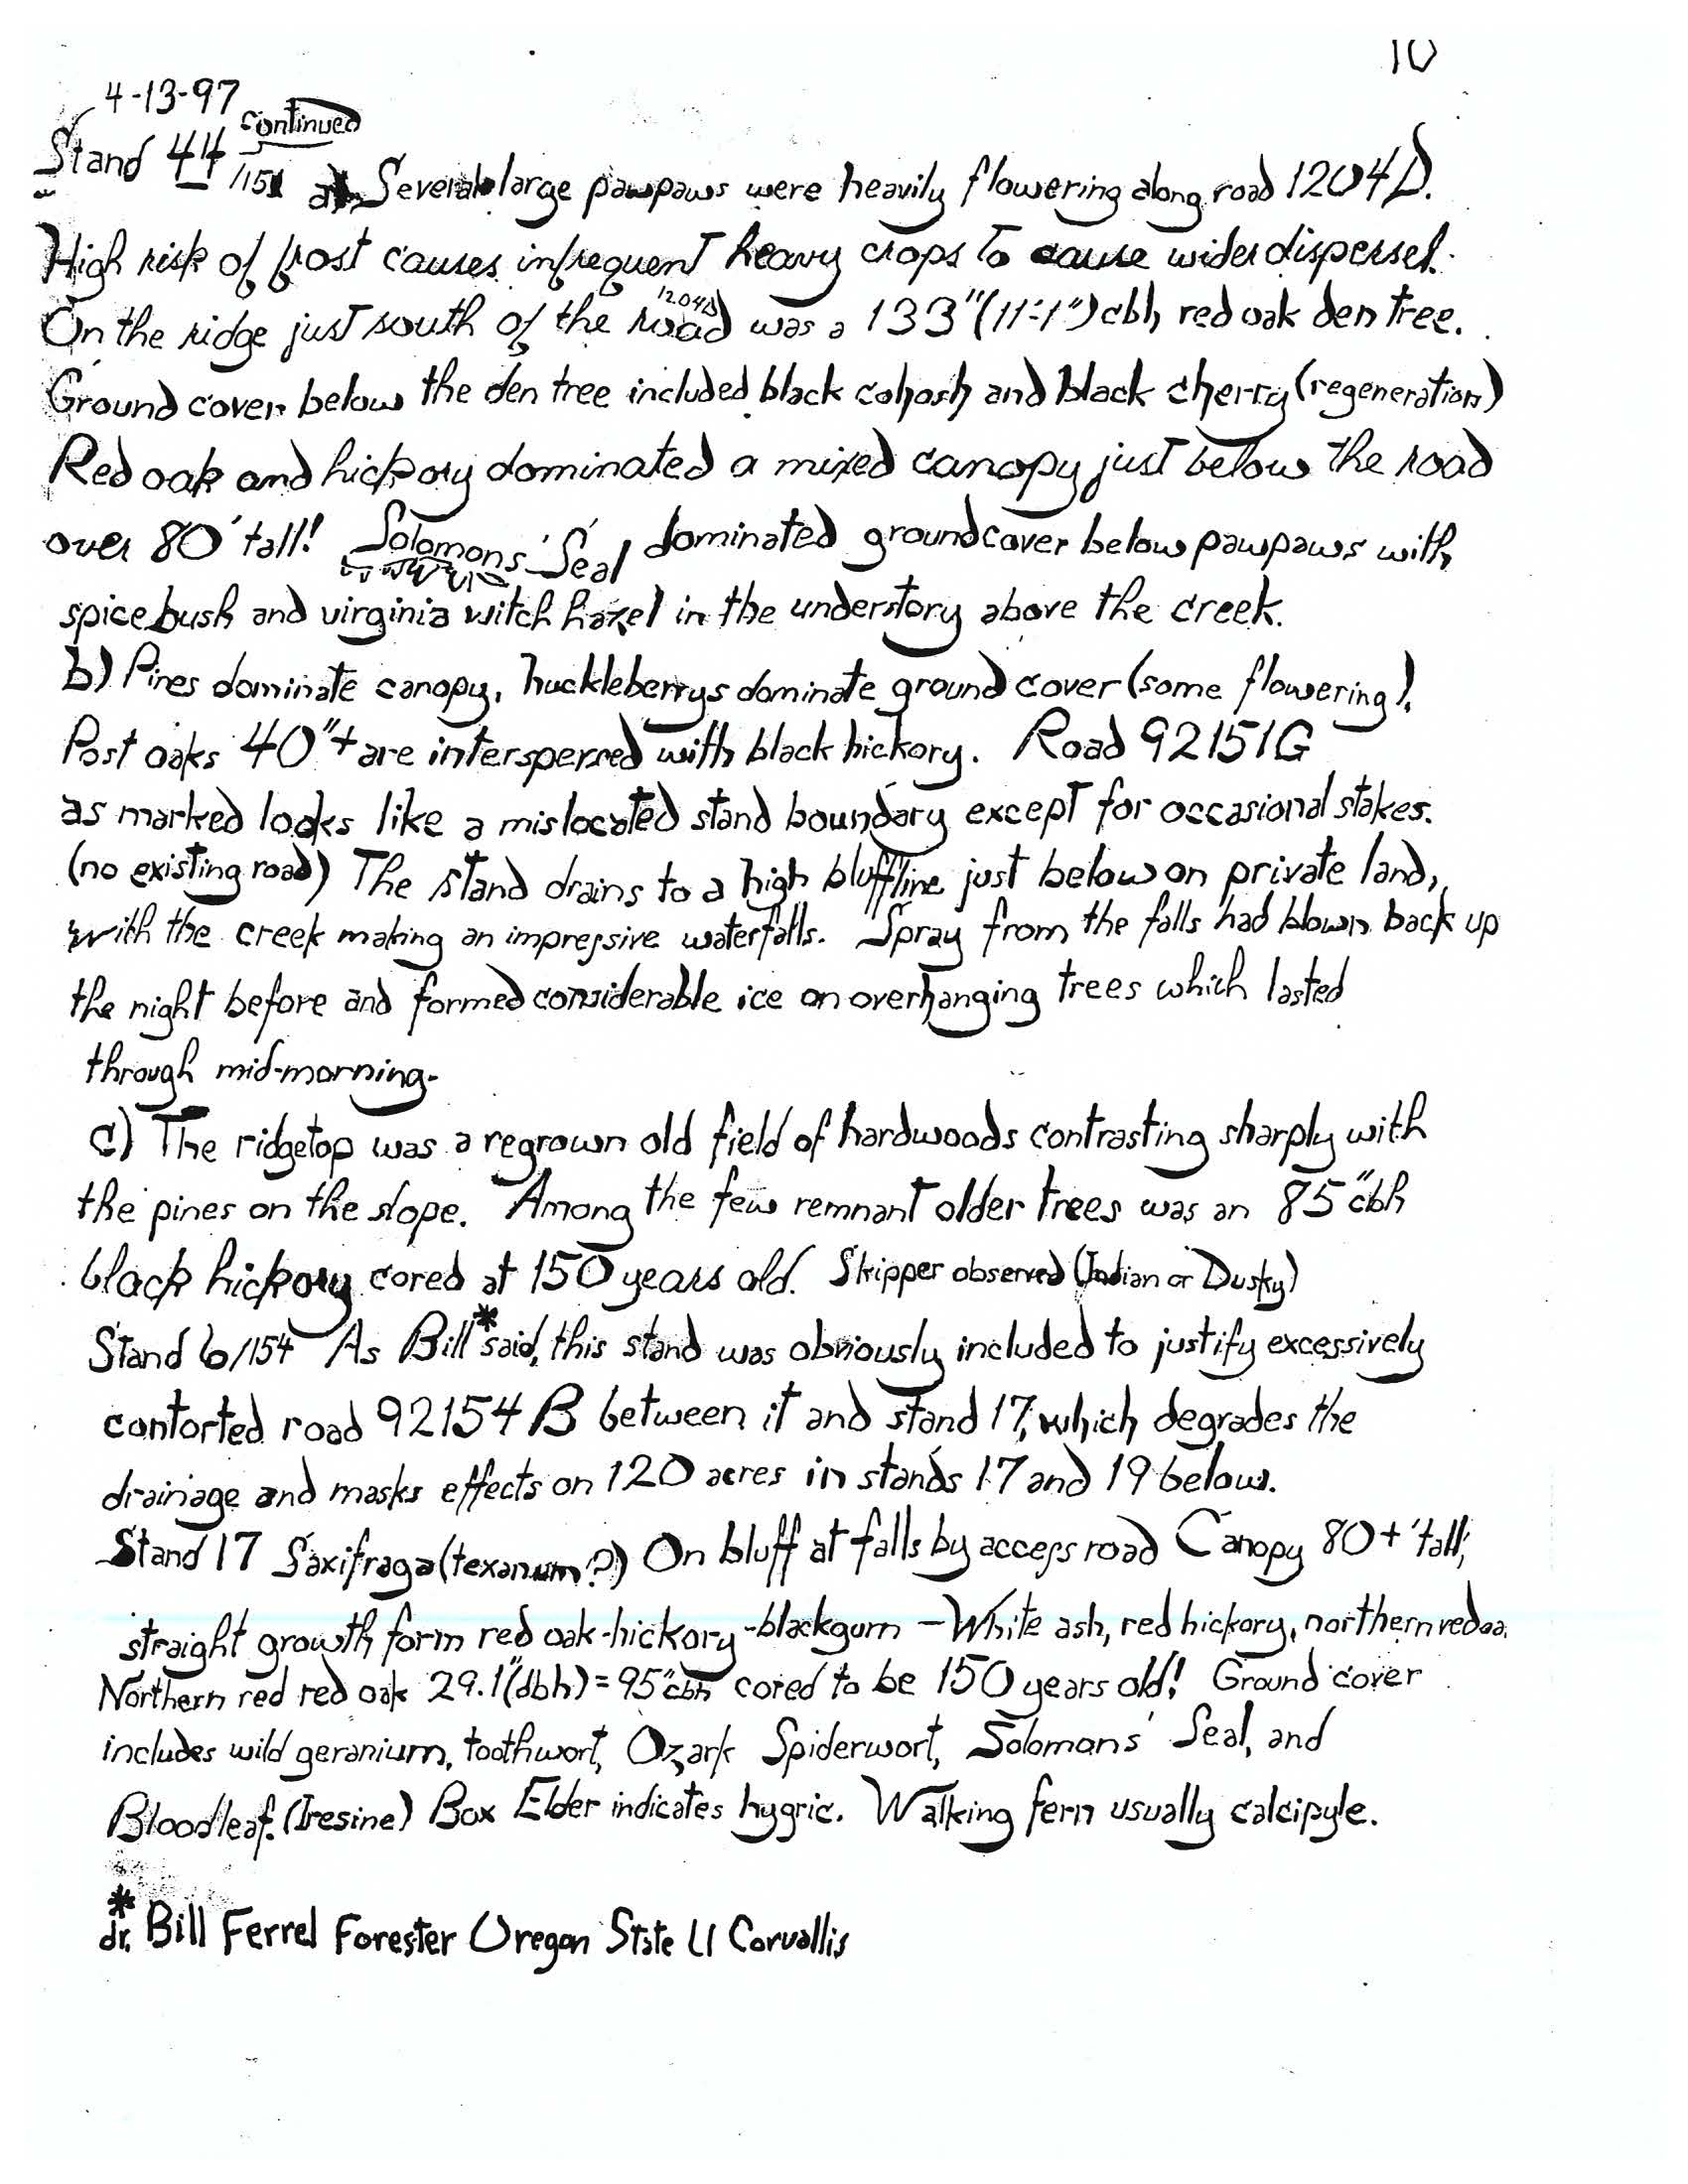 10
4-13-97
Stand 44/151 continued a) Several large pawpaws were heavily flowering along road 1204D.
High risk of frost causes infrequent heavy crops to cause wider dispersel.
On the ridge just south of the 1204D road was a 133" (11'-1") cbh red oak den tree.
Ground cover below the den tree included black cohosh and black cherry (regeneration)
Red oak and hickory dominated a mixed canopy just below the road
over 80' tall! Solomons' Seal dominated groundcover below pawpaws with
spicebush and virginia witch hazel in the understory above the creek.
b) Pines dominate canopy, huckleberrys dominate ground cover (some flowering).
Post oaks 40"+ are interspersed with black hickory. Road 92151G
as marked looks like a mislocated stand boundary except for occasional stakes.
(no existing road) The stand drains to a high bluffline just below on private land,
with the creek making an impressive waterfalls. Spray from the falls had blown back up
the night before and formed considerable ice on overhanging trees which lasted
through mid-morning.
c) The ridgetop was a regrown old field of hardwoods contrasting sharply with
the pines on the slope. Among the few remnant older trees was an 85" cbh
black hickory cored at 150 years old. Skipper observed (Indian or Dusky)
Stand 6/154 As Bill* said, this stand was obviously included to justify excessively
contorted road 92154B between it and stand 17, which degrades the
drainage and masks effects on 120 acres in stands 17 and 19 below.
Stand 17 Saxifraga (texanum?) On bluff at falls by access road Canopy 80+' tall,
straight growth form red oak-hickory-blackgum - White ash, red hickory, northern red oa
Northern red red oak 29.1" (dbh) = 95" cbh cored to be 150 years old! Ground cover
includes wild geranium, toothwort, Ozark Spiderwort, Solomans' Seal, and
Bloodleaf. (Iresine) Box Elder indicates hygric. Walking fern usually calcipyle.
* dr. Bill Ferrel Forester Oregon State U Corvallis